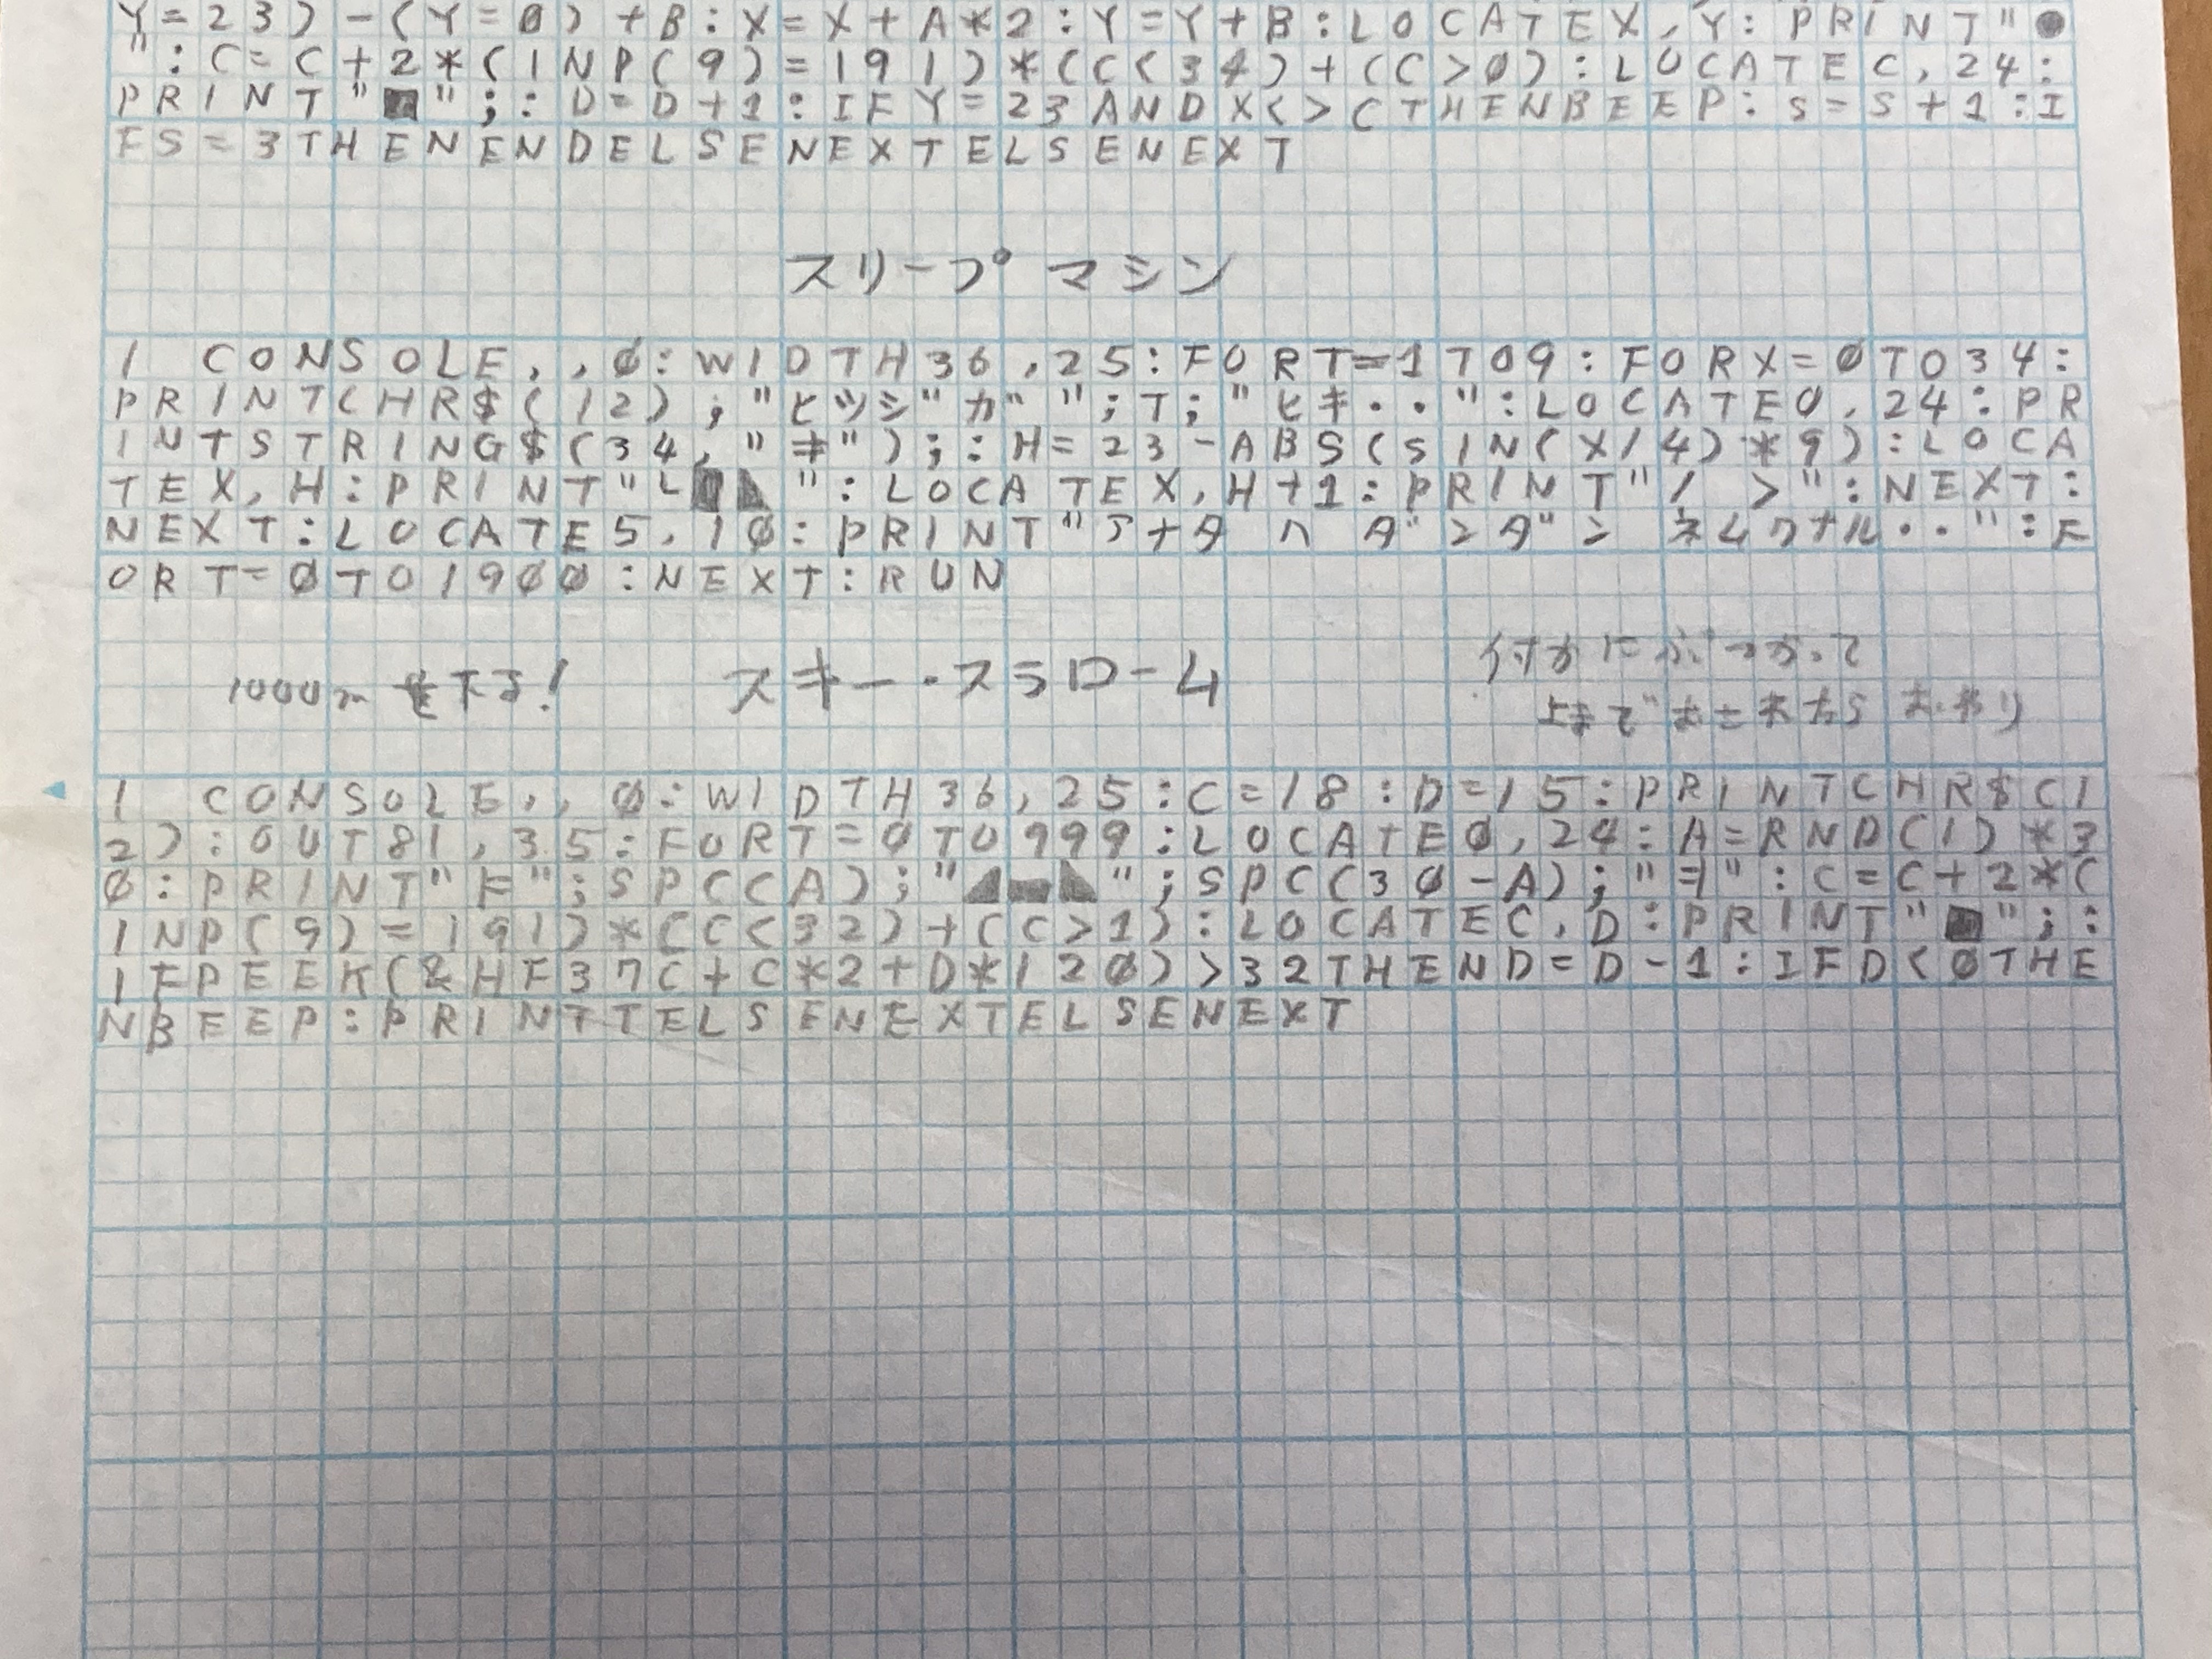 Y=23)-(Y=0)+B:X=X+A*2:Y=Y+B:LOCATEX,Y:PRINT"●
":C=C+2*(INP(9)=191)*(C<34)+(C>0):LOCATEC,24:
PRINT"■";:D=D+1:IFY=23ANDX<>CTHENBEEP:S=S+1:I
FS=3THENENDELSENEXTELSENEXT
スリープ マシン
1 CONSOLE,,0:WIDTH36,25:FORT=1TO9:FORX=0TO34:
PRINTCHR$(12);"ヒツジ ガ ";T;"ヒキ・・":LOCATE0,24:PR
INTSTRING$(34,"キ");:H=23-ABS(SIN(X/4)*9):LOCA
TEX,H:PRINT"└■◣":LOCATEX,H+1:PRINT"/ >":NEXT:
NEXT:LOCATE5,10:PRINT" ネムクナル・・":F
ORT=0TO1900:NEXT:RUN
1000m を下る! スキー・スラローム
上まで おされたら おわり
1 CONSOLE,,0:WIDTH36,25:C=18:D=15:PRINTCHR$(1
2):OUT81,35:FORT=0TO999:LOCATE0,24:A=RND(1)*3
0:PRINT"╞";SPC(A);"◢■◣";SPC(30-A);"╡":C=C+2*(
INP(9)=191)*(C<32)+(C>1):LOCATEC,D:PRINT"■";:
IFPEEK(&HF37C+C*2+D*120)>32THEND=D-1:IFD<0THE
NBEEP:PRINTTELSENEXTELSENEXT